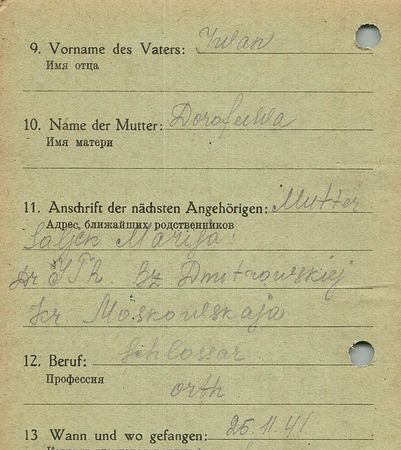 9. Vorname des Vaters: Iwan
Имя отца
10. Name der Mutter: Dorofeewa
Имя матери
11. Anschrift der nächsten Angehörigen: Mutter
Адрес, ближайших родственников
Marija
Dr Bz Dmitrowskiej
Kr Moskowskaja
12. Beruf: Schlossar
Профессия
orth
13 Wann und wo gefangen: 25.11.41